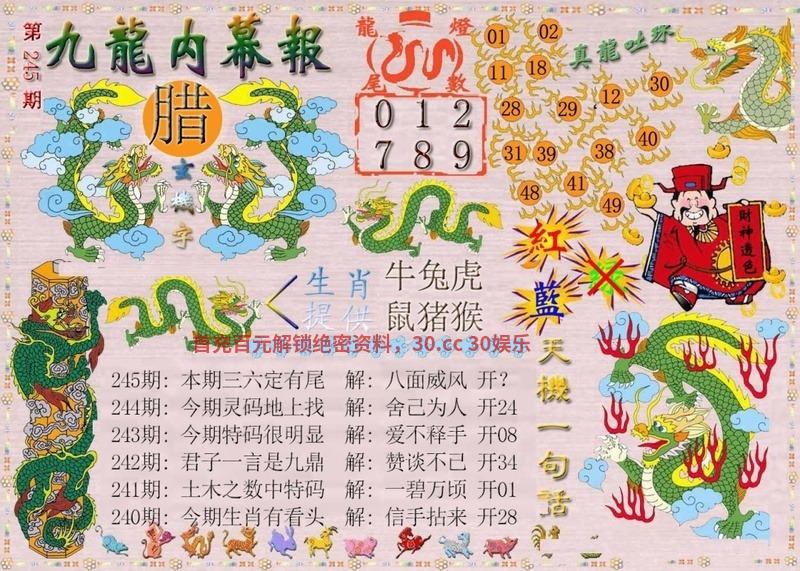 第245期
九龍内幕報
腊
玄機字
龍燈
尾數
0 1 2
7 8 9
真龍吐珠
01 02
11 18
28 29 12 30
31 39 38 40
48 41 49
紅
藍
財神透色
生肖
提供
牛兔虎
鼠猪猴
首充百元解锁绝密资料，30.cc 30娱乐
245期: 本期三六定有尾 解: 八面威风 开?
244期: 今期灵码地上找 解: 舍己为人 开24
243期: 今期特码很明显 解: 爱不释手 开08
242期: 君子一言是九鼎 解: 赞谈不己 开34
241期: 土木之数中特码 解: 一碧万顷 开01
240期: 今期生肖有看头 解: 信手拈来 开28
天機一句話